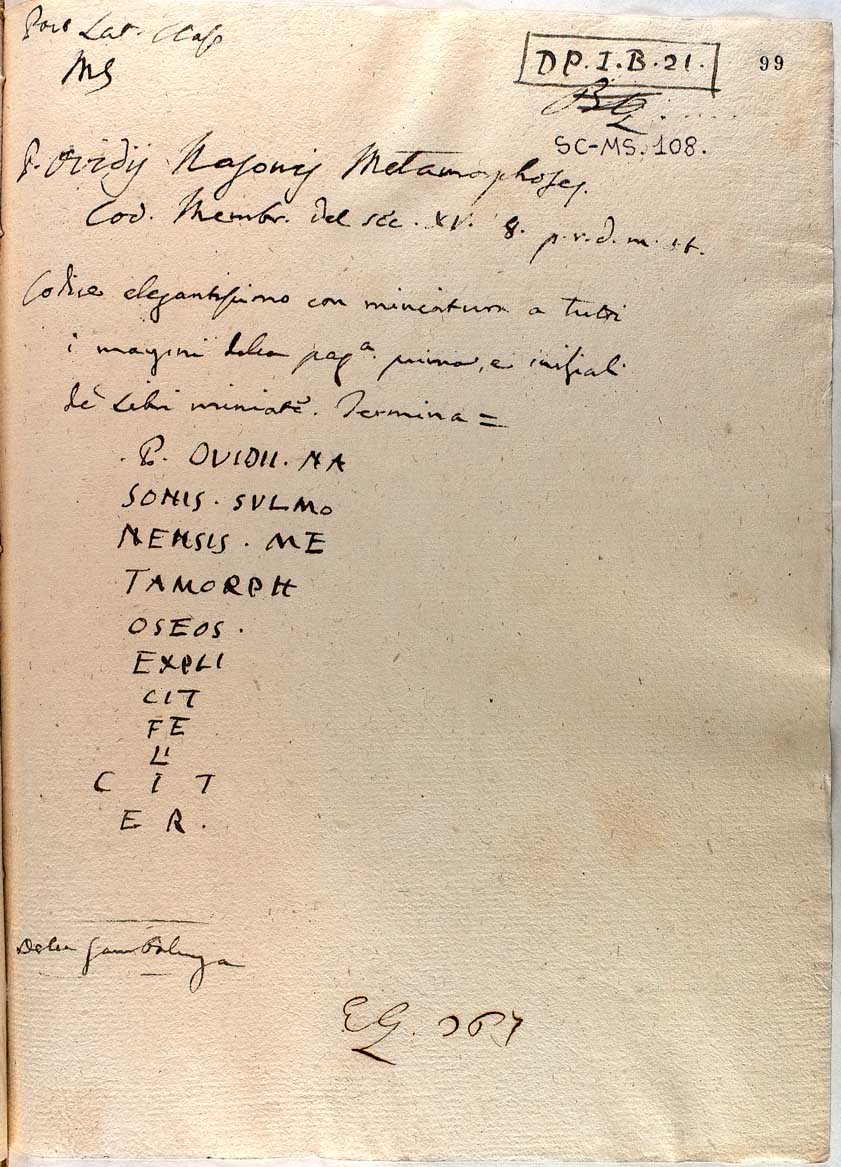 Lat. Class
MS
DP.I.B.21.
99
SC-MS. 108.
P. Ovidij Nasonis Metamorphoses.
Cod. Membr. del sec. XV. 8. p.v.d.m.
Codice elegantissimo con miniatura a tutti
i margini della pagª. prima, e iniziali
de' Libri miniate. Termina =
P. OVIDII. NA
SONIS. SVLMO
NENSIS. ME
TAMORPH
OSEOS.
EXPLI
CIT
FE
LI
C I T
E R.
Della Gambalunga